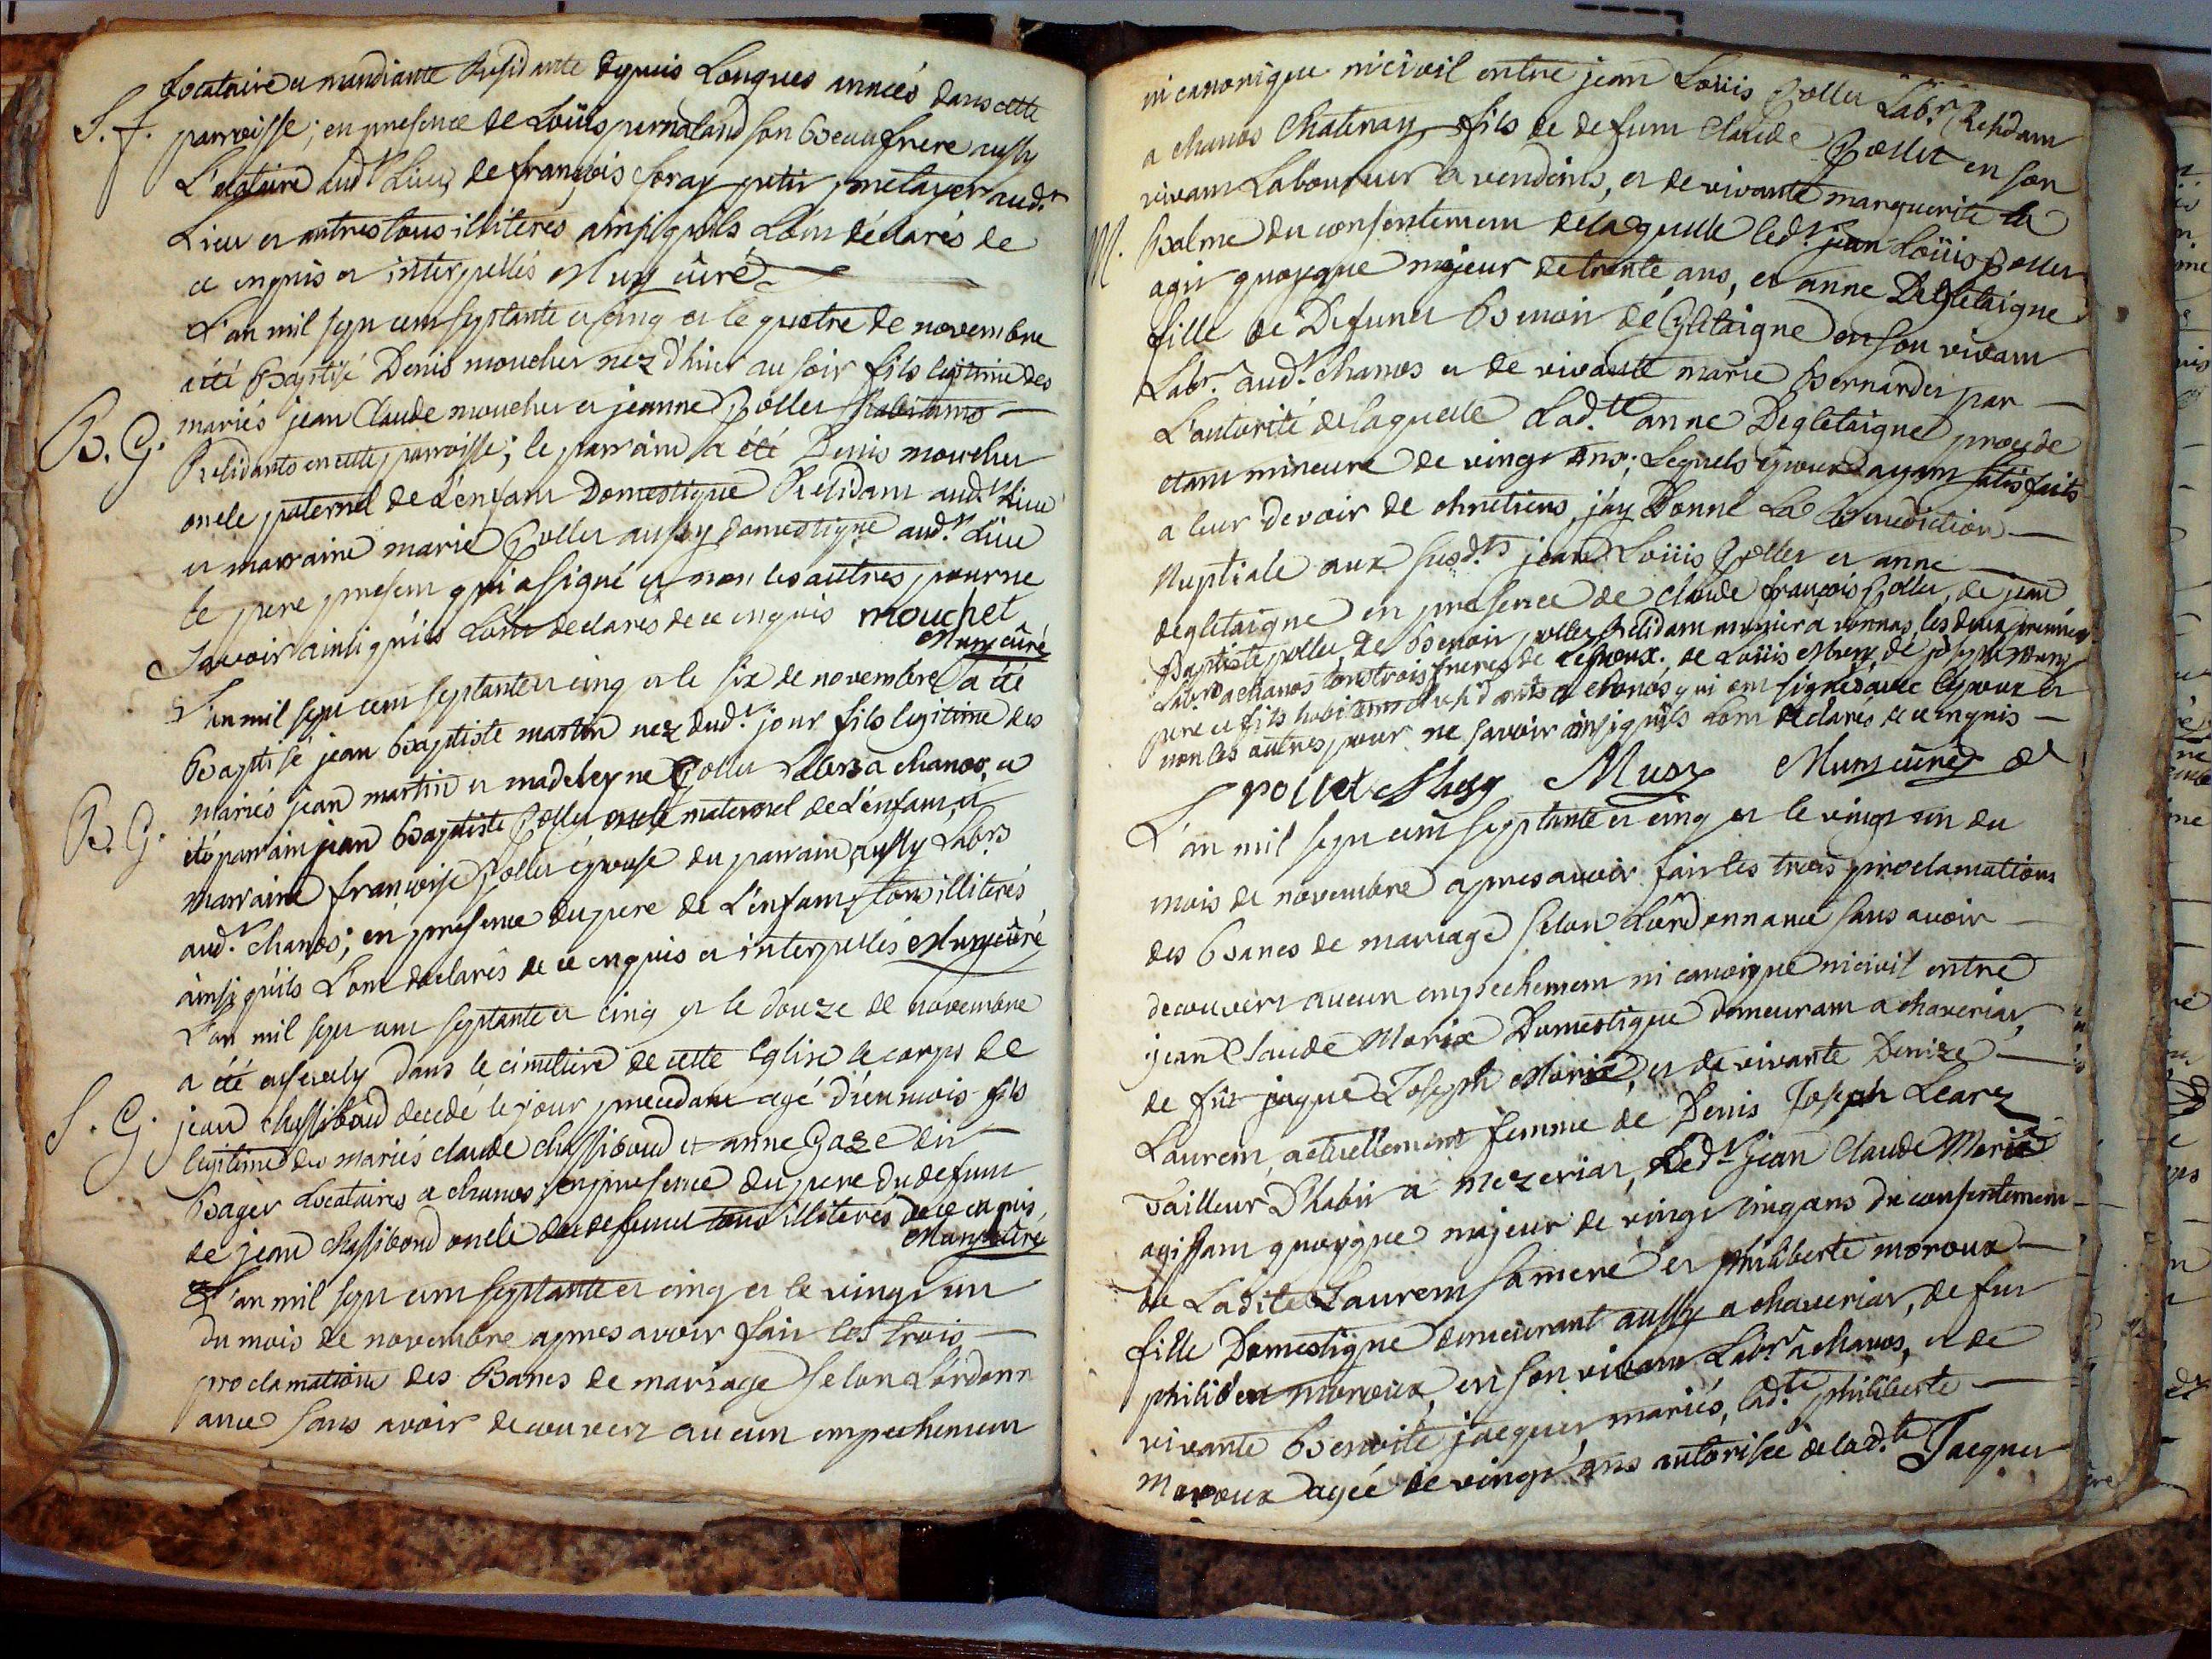 locataire et mandiante Residante depuis Longues années dans cette
S. f. parroisse; en presence de Loüis pernaland son beau frere aussy
Locataire aud.t Lieu, de françois foray petit metayer aud.t
Lieu et autres tous illiterés ainsi qu'ils L'ont déclarés de
ce enquis et interpellés Mury curé
L'an mil sept cent septante et cinq et le quatre de novembre
a été Baptisé Denis mouchet nez d'hier au soir fils legitime des
mariés jean Claude mouchet et jeanne pollet
B. G. Residants en cette parroisse; le parrain a été Denis mouchet
oncle paternel de L'enfant Domestique Residant aud.t Lieu
et marraine marie pollet aussy domestique aud.t Lieu
le pere present qui a signé et non les autres pour ne
Savoir ainsi qu'ils L'ont declarés de ce enquis mouchet
Mury curé
L'an mil sept cent septante et cinq et le six de novembre a été
Baptisé jean Baptiste martin nez dud.t jour fils legitime des
mariés jean martin et madeleyne pollet Labrs a chanos, a
B. G. été parrain jean Baptiste pollet oncle maternel de L'enfant, et
marraine françoise pollet épouse du parrain, aussy Labrs
aud.t chanos; en presence du pere de L'enfant, tous illiterés
ainsy qu'ils L'ont declarés de ce enquis et interpellés Mury curé
L'an mil sept cent septante et cinq et le douze de novembre
a été ensevely dans le cimetiere de cette Eglise le corps de
S. G. jean chassiboud decedé le jour precedant agé d'un mois fils
legitime des mariés claude chassiboud et anne Gaze dit
Bager Locataires a chanos, en presence du pere du defunt
de jean chassiboud oncle du defunt tous illiterés de ce enquis,
Mury curé
L'an mil sept cent septante et cinq et le vingt un
du mois de novembre apres avoir fait les trois
proclamations des Bancs de mariage selon L'ordonn
ance sans avoir decouvert aucun empechement
ni canonique ni civil entre jean Loüis pollet Labr Residant
a chanos Chatenay, fils de defunt Claude pollet en son
vivant Laboureur a vendeins, et de vivante marguerite la
M. Balme du consentement de laquelle led.t jean Loüis pollet
agit quoyque majeur de trente ans, et anne Degletaigne
fille de Defunt Benoit de Gletaigne en son vivant
Labr. aud.t chanos et de vivante marie Bernardet par
L'autorité de laquelle Lad.te anne Degletaigne procede
etant mineure de vingt ans; Lequels epoux ayant satisfaits
a leur devoir de chretiens, j'ay Donné La Benediction
Nuptiale aux susd.ts jean Loüis pollet et anne
degletaigne en presence de Claude françois pollet, de jean
Baptiste pollet de Benoit pollet Residant a vonnas, les deux premiers
Labrs a chanos tous trois freres de L'epoux. de Loüis Mury, de joseph Mury
pere et fils habitants Residants a chanos qui ont signés avec L'epoux et
non les autres pour ne savoir ainsi qu'ils L'ont declarés de ce enquis
pollet Musy Musy Mury curé
L'an mil sept cent septante et cinq et le vingt un du
mois de novembre apres avoir fait les trois proclamations
des Bancs de mariage selon L'ordonnance sans avoir
decouvert aucun empechement ni canonique ni civil entre
jean Claude Morix Domestique demeurant a chaveriat,
de fût jaque Joseph Morix, et de vivante Denize
Laurent, actuellement femme de Denis Joseph Learz
Tailleur D'habit a mezeriat, Led.t jean Claude Morix
agissant quoyque majeur de vingt cinq ans du consentement
de Ladite Laurent sa mere et philiberte moroux
fille Domestique demeurant aussy a chaveriat, de fut
philibert moroux, en son vivant Labr. a chanos, et de
vivante Benoite jacquet mariés, lad.te philiberte
Moroux agée de vingt ans autorisée de lad.te Jacquet